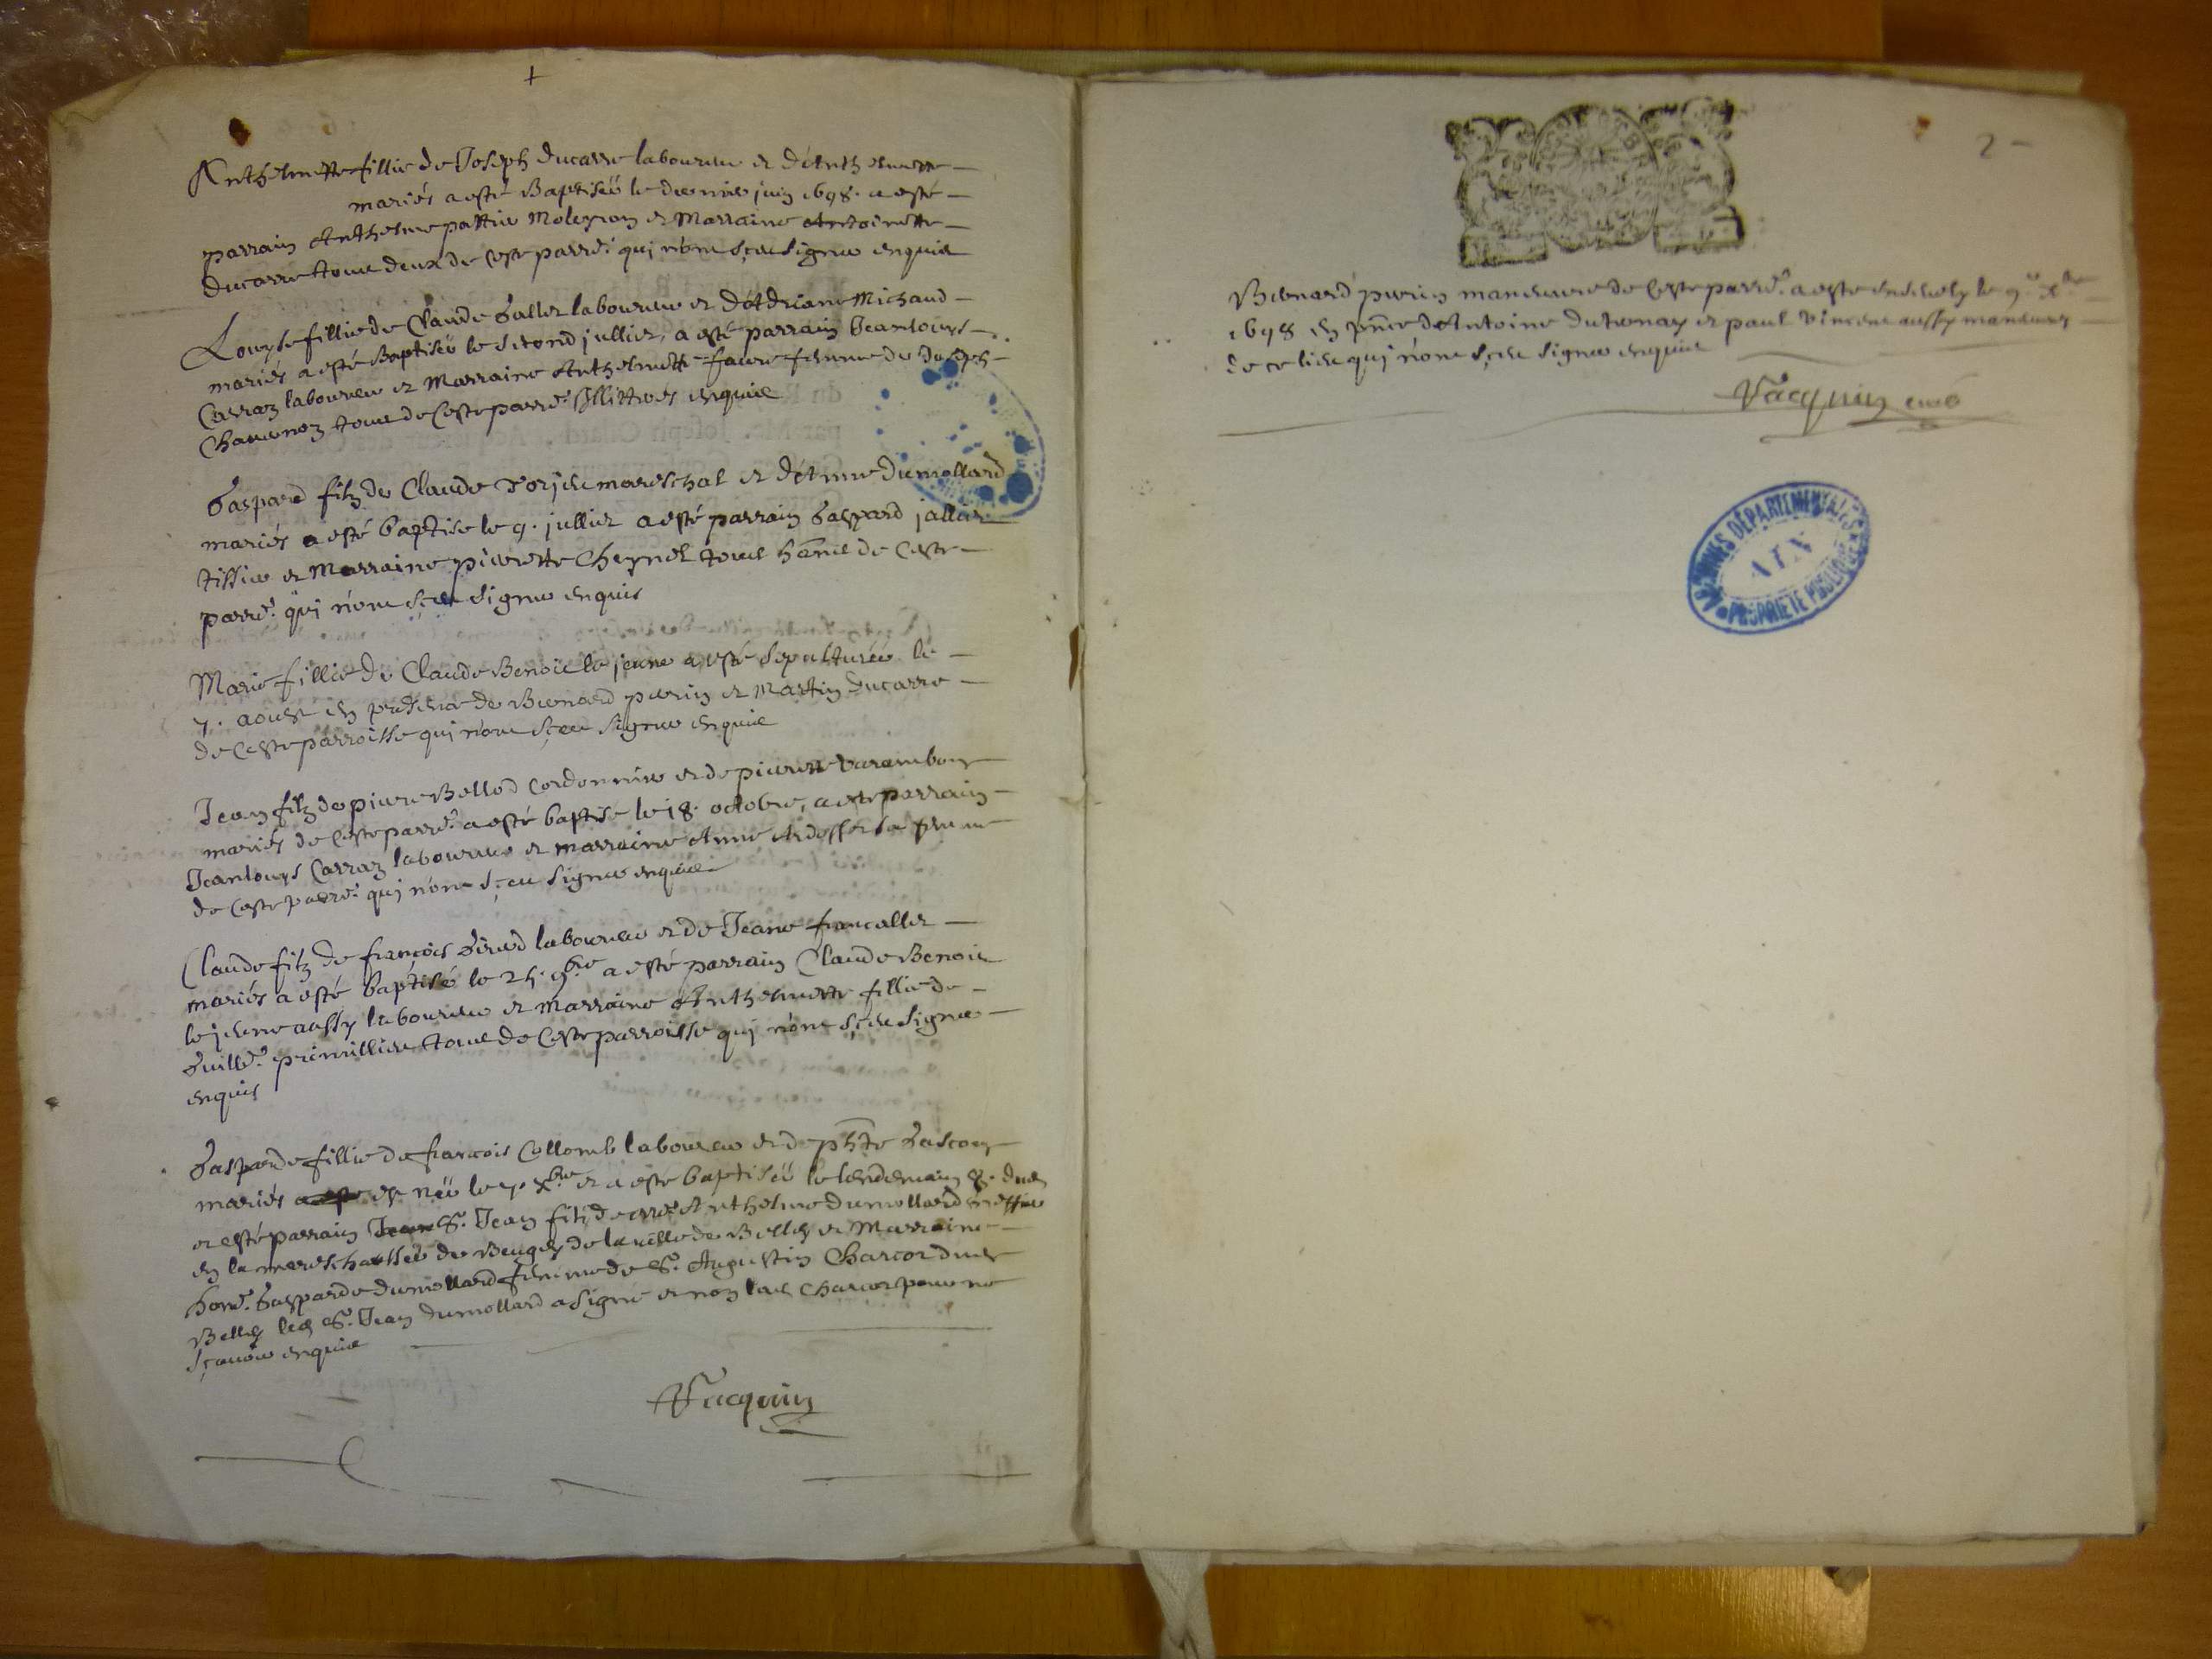 +
Anthelmette fillie de Joseph ducarre laboureur et d'Anthelmette
mariés a esté Baptiseé le dernier juin 1698. a esté
parrain Anthelme pattier Moleyron et Marraine Antoinette
ducarre tous deux de ceste parre. qui n'ont sçeu signer enquis
Louyse fillie de Claude Gallet laboureur et d'Adriane Michaud
mariés a esté Baptiseé le second jullier, a esté parrain Jeanlouys
Carraz laboureur et Marraine Anthelmette faure femme de Joseph
Charvenoz tous de Ceste parre. Illittrés enquis
Gaspard filz de Claude marechal et d'Anne Dumollard
mariés a esté baptise le 9. jullier a esté parrain Gaspard jallier
tissier et Marraine pierrette Cheynel tous de Ceste
parre. qui n'ont sçeu signer enquis
Marie fillie de Claude Benoit le jeune a esté sepultureé le
7. aoust en presence de Bernard perrin et Martin Ducarre
de Ceste parroisse qui n'ont sçeu signer enquis
Jean filz de pierre Bellod Cordonnier et de pierrette Varambon
mariés de Ceste parre. a esté baptisé le 18. octobre, a esté parrain
Jeanlouys Carraz laboureur et marraine Anne sa femme
de Ceste parre. qui n'ont sçeu signer enquis
Claude filz de françois Girerd laboureur et de Jeane francallet
mariés a esté baptisé le 25. 9bre a esté parrain Claude Benoit
le jeune aussy laboureur et Marraine Anthelmette fillie de
Guille. primillieu tous de Ceste parroisse qui n'ont sçeu signer
enquis
Gasparde fillie de francois Collomb laboureur et de Gascon
mariés est neé le 7. Xbre et a esté baptiseé le lendemain 8. dud
et esté parrain Sr. Jean filz de Anthelme dumollard greffier
en la mareschausseé de Beugey de la ville de Belley et Marraine
hone. Gasparde dumollard femme de Sr. Augustin Charcot dud
Belley led Sr. Jean dumollard a signé et non lad Charcot pour ne
sçavoir enquise
Vacquin
2
Bernard perrin manouvrier de Ceste parre. a esté ensevely le 9e Xbre
1698 en pnce d'Antoine dutrenay et paul Vincent aussy manouvriers
de ce lieu qui n'ont sçeu signer enquis
Vacquin curé
ARCHIVES DÉPARTEMENTALES
AIN
PROPRIÉTÉ PUBLIQUE